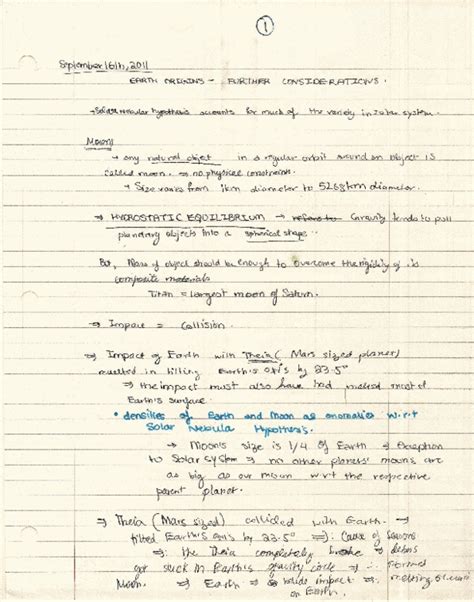 1
September 16th, 2011
EARTH ORIGINS - FURTHER CONSIDERATIONS.
→ Solar nebular hypothesis accounts for much of the variety in solar system.
Moons
→ any natural object in a regular orbit around an object is
called moon. ⇒ no physical constraints.
• Size varies from 1km diameter to 5268km diameter.
⇒ HYDROSTATIC EQUILIBRIUM → refers to Gravity tends to pull
planetary objects into a spherical shape.
But, Mass of object should be enough to overcome the rigidity of its
composite materials
Titan = largest moon of Saturn.
⇒ Impact = Collision.
⇒ Impact of Earth with Theia ( Mars sized planet)
resulted in tilting Earth's axis by 23.5°
⇒ the impact must also have had melted most of
Earth's surface.
• densities of Earth and Moon as anomalies w.r.t
Solar Nebula Hypothesis.
→ Moon's size is 1/4 of Earth ⇒ Exception
to Solar system ⇒ no other planets' moons are
as big as our moon w.r.t the respective
parent planet.
⇒ Theia (Mars sized) collided with Earth. ⇒
tilted Earth's axis by 23.5° ⇒ : Cause of Seasons
⇒ : the Theia completely broke ⇒ debris
got suck in Earth's gravity circle ⇒ : formed
Moon. ⇒ Earth ⇒ impact
on Earth.